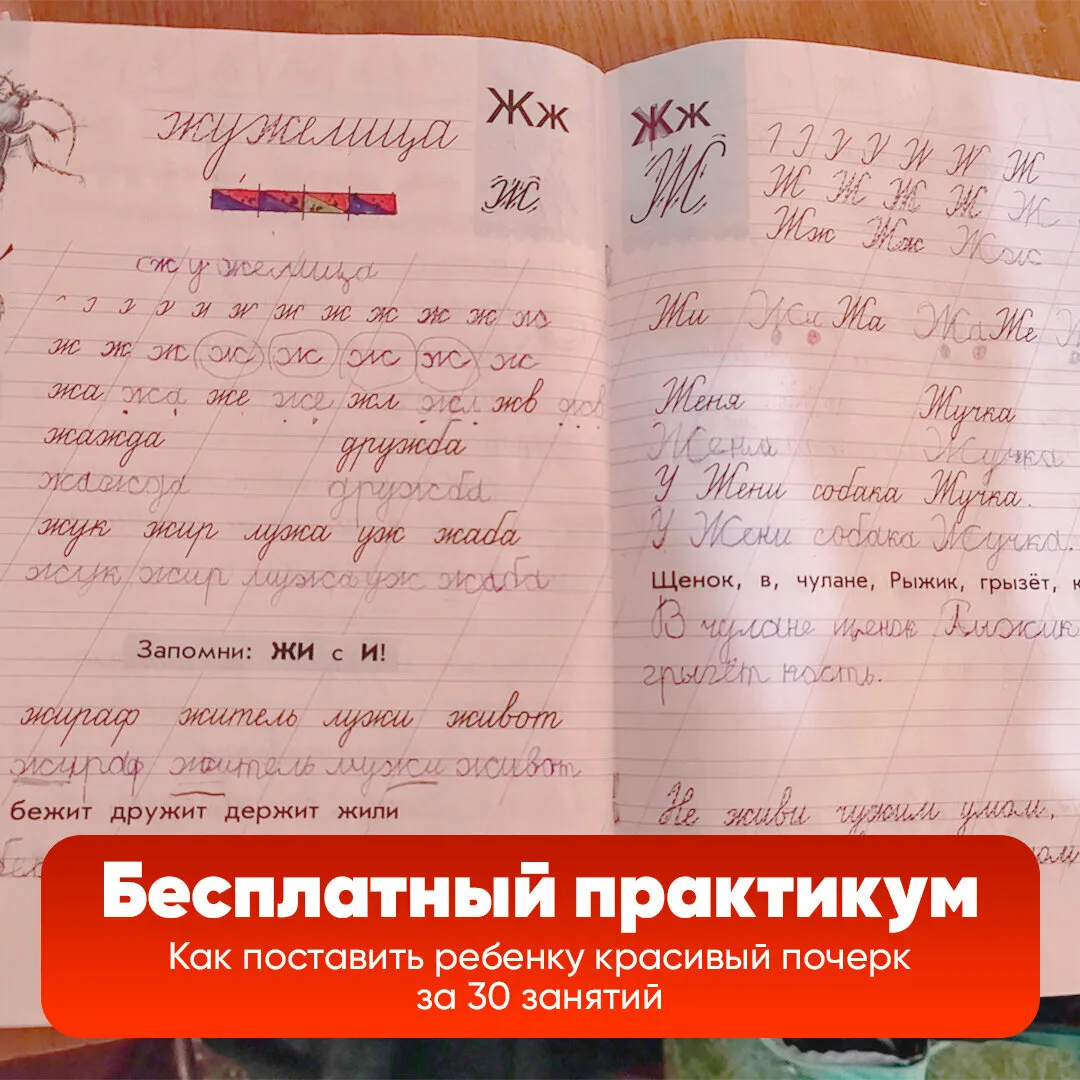 жужелица
Жж
Ж
жужелица
ж ж ж ж ж ж ж
ж ж ж ж ж ж ж ж
жа жа же же жл жл жв жв
жажда дружба
жажда дружба
жук жир лужа уж жаба
жук жир лужа уж жаба
Запомни: ЖИ с И!
жираф житель лужи живот
жираф житель лужи живот
бежит дружит держит жили
Жж
Ж
Ж
Ж Ж Ж Ж Ж
Жж Жж Жж
Жи Жи Жа Жа Же
Женя Жучка
Женя Жучка
У Жени собака Жучка.
У Жени собака Жучка.
Щенок, в, чулане, Рыжик, грызёт,
В чулане щенок Рыжик
грызёт кость.
Не живи чужим умом,
Бесплатный практикум
Как поставить ребенку красивый почерк
за 30 занятий